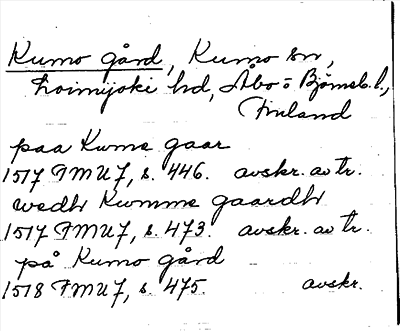 Kumo gård, Kumo sn,
Loimijoki hd, Åbo o Björneb. l.,
Finland
paa Kumo gaar
1517 FMU 7, s. 446. avskr. av tr.
wedh Kumme gaardh
1517 FMU 7, s. 473. avskr. av tr.
på Kumo gård
1518 FMU 7, s. 475. avskr.